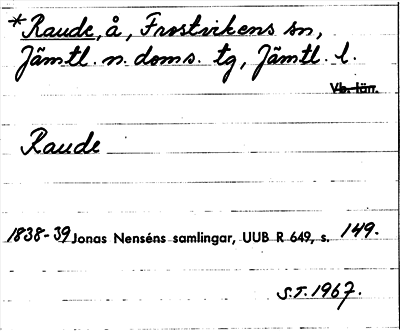 *Raude, å, Frostvikens sn,
Jämtl. n. doms. tg, Jämtl. l.
Vb. lärr.
Raude
1838-39 Jonas Nenséns samlingar, UUB R 649, s. 149.
S.T. 1967.